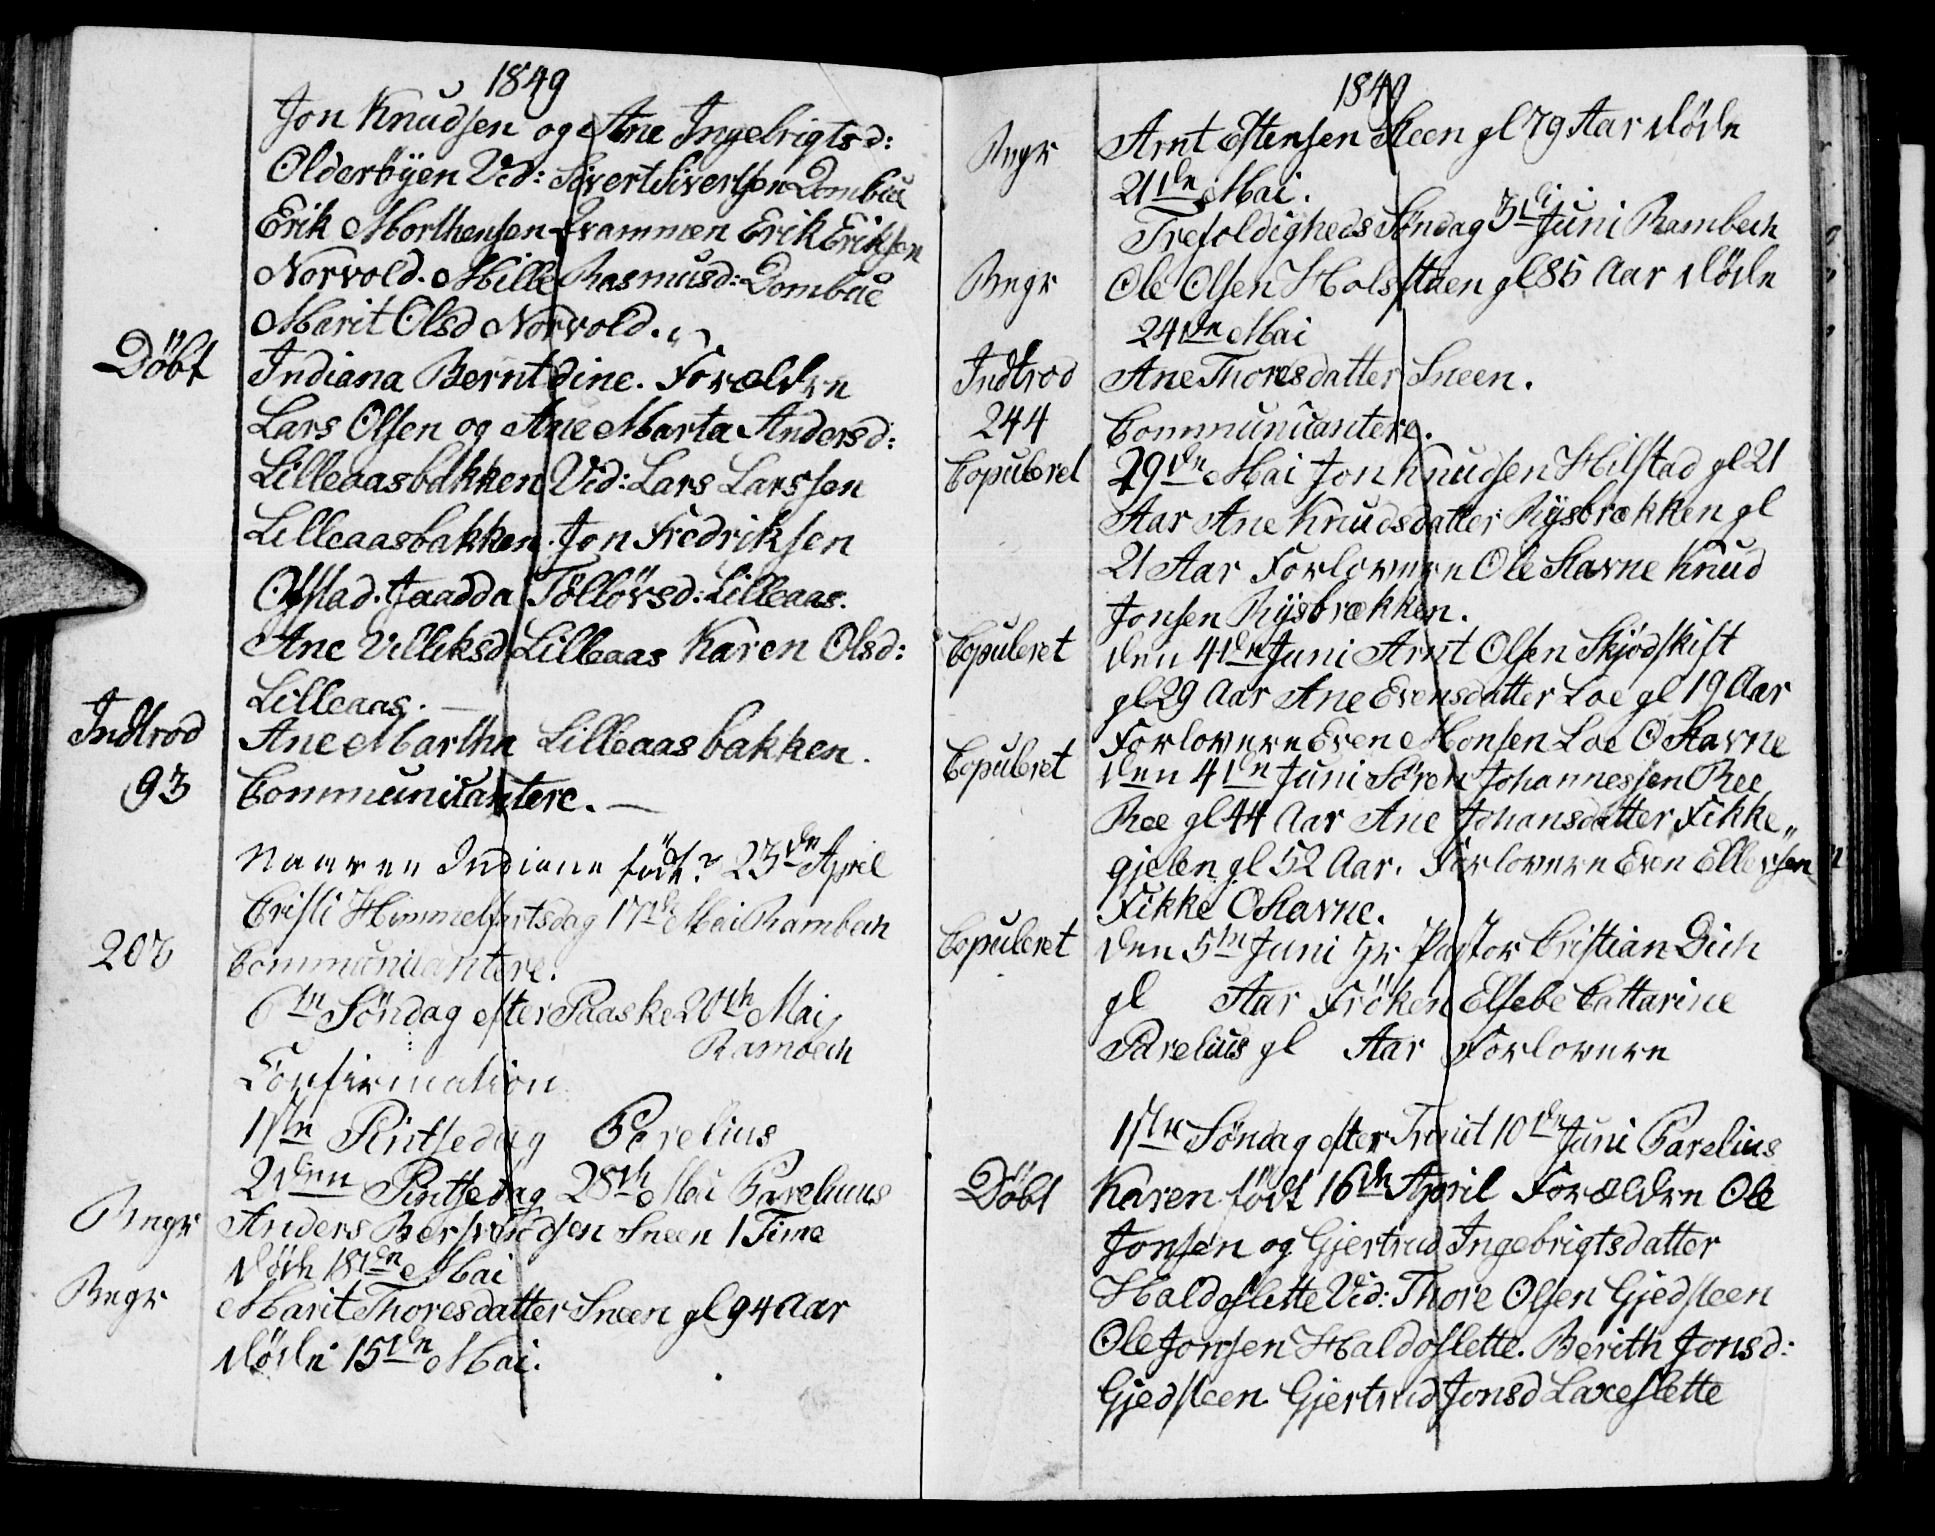 1849
Jon Knudsen og Ane Ingebrigtsd:
Olderbÿen Vid: Sivert Sivertsen Dombue
Erik Morthensen Evammen Erik Eriksen
Norvold. Mille Rasmusd: Dombue
Marit Olsd Norvold.
Döbt Indiana Berntdine. Forældre
Lars Olsen og Ane Marta Andersd:
Lilleaasbakken Vid: Lars Larssen
Lilleaasbakken. Jon Fredriksen
Ofstad. Jaadda Töllövsd: Lilleaas.
Ane Villiksd Lilleaas Karen Olsd:
Lilleaas.
Indtrod Ane Marthe Lilleaasbakken.
93 Communicantere.
Naar er Indiane född? 23de April
Cristi Himmelfartsdag 17de Mai Rambech
207 Communicantere.
6te Söndag efter Paaske 20de Mai
Rambech
Confirmation
1ste Pintsedag Parelius
2den Pintsedag 28de Mai Parelius
Begr Anders Bersvendsen Sneen 1 Time
död 18de Mai
Begr Marit Thoresdatter Sneen gl 94 Aar
döde 15de Mai.
1849
Begr Arnt Estensen Steen gl 79 Aar döde
21de Mai.
Trefoldigheds Söndag 3die Juni Rambech
Begr Ole Olsen Holsstuen gl 85 Aar döde
24de Mai
Indtrod Ane Thoresdatter Sneen.
244 Communicantere.
Copuleret 29de Mai Jon Knudsen Hilstad gl 21
Aar Ane Knudsdatter Rÿsbrækken gl
21 Aar Forlovere Ole Stavne Knud
Jonsen Rÿsbrækken.
Copuleret den 4de Juni Arnt Olsen Skjödskift
gl 29 Aar Ane Evensdatter Loe gl 19 Aar
Forlovere Even Monsen Loe O Stavne
Copuleret den 4de Juni Sören Johannessen Ree
Ree gl 44 Aar Ane Johansdatter Fikke„
gjelen gl 52 Aar. Forlovere Even Ellevsen
Fikke O Stavne.
Copuleret den 5te Juni Hr Pastor Cristian Dich
gl Aar Fröken Elsebe Cattarine
Parelius gl Aar Forlovere
1ste Söndag efter Trinit 10de Juni Parelius
Döbt Karen född 16de April Forældre Ole
Jonsen og Gjertrud Ingebrigtsdatter
Haldoslette Vid: Thore Olsen Gjedsteen
Ole Jonsen Haldoslette. Berith Jonsd:
Gjedsteen Gjertrud Jonsd Laxeslette